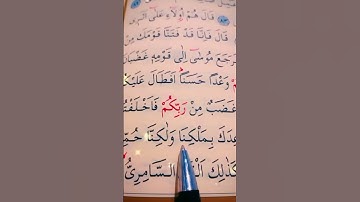 قَالَ هُمْ أُولَاءِ عَلَىٰ
قَالَ فَإِنَّا قَدْ فَتَنَّا قَوْمَكَ مِنْ
رَجَعَ مُوسَىٰ إِلَىٰ قَوْمِهِ غَضْبَا
وَعْدًا حَسَنًا أَفَطَالَ عَلَيْكُ
غَضَبٌ مِنْ رَبِّكُمْ فَأَخْلَفْتُ
عِدَكَ بِمَلْكِنَا وَلَٰكِنَّا حُمِّ
كَذَٰلِكَ السَّامِرِيُّ